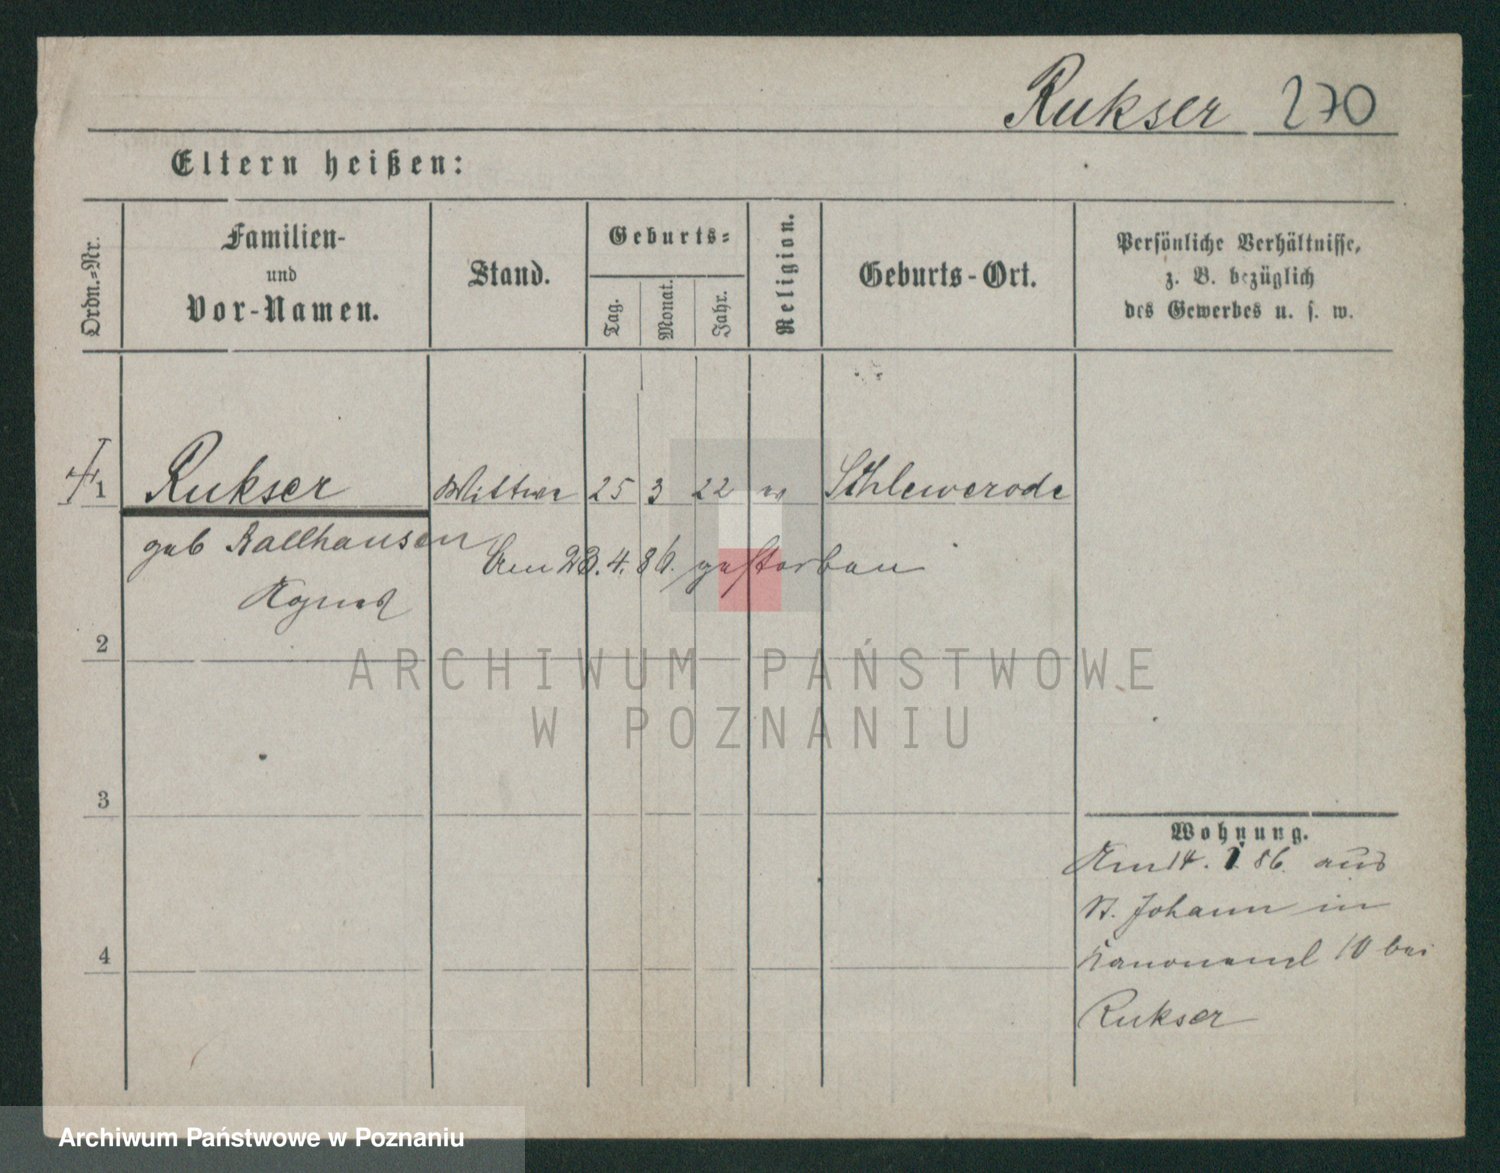 Rukser 270
Eltern heißen:
Ordn.-Nr.
Familien-
und
Vor-Namen.
Stand.
Geburts-
Tag.
Monat.
Jahr.
Religion.
Geburts-Ort.
Persönliche Verhältnisse,
z. B. bezüglich
des Gewerbes u. s. w.
1 Rukser Wittwe 25 3 22 Schlewerode
geb Kallhausen
Am 23.4.86. gestorben
Agnes
2
ARCHIWUM PAŃSTWOWE
W POZNANIU
3
Wohnung.
Am 14. 1 86. aus
St. Johann in
Kanonenpl 10 bei
4
Rukser
Archiwum Państwowe w Poznaniu